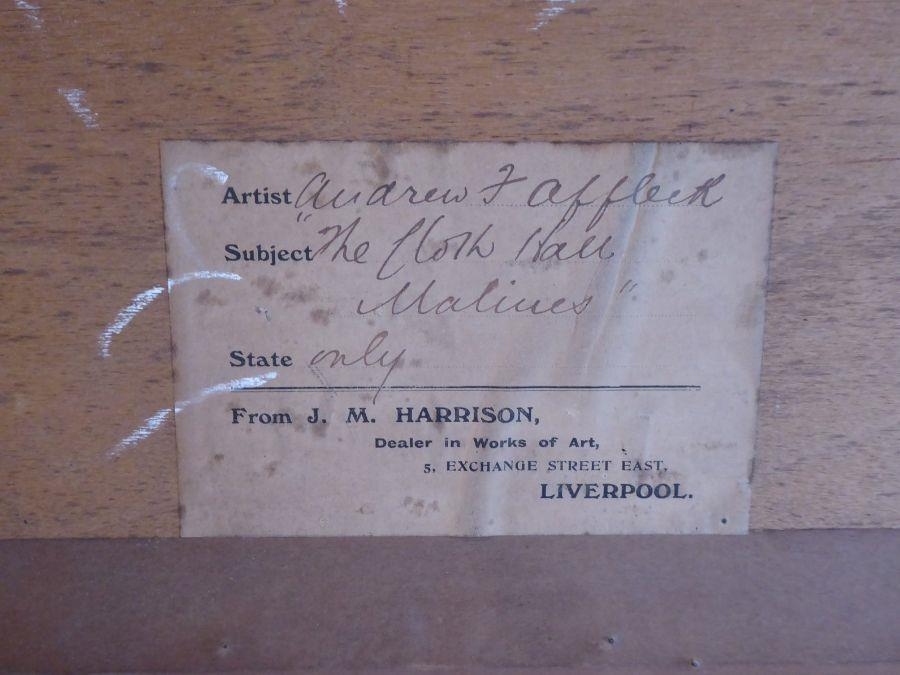 Artist Andrew F Affleck
Subject "The Cloth Hall
Malines"
State only
From J. M. HARRISON,
Dealer in Works of Art,
5, EXCHANGE STREET EAST,
LIVERPOOL.